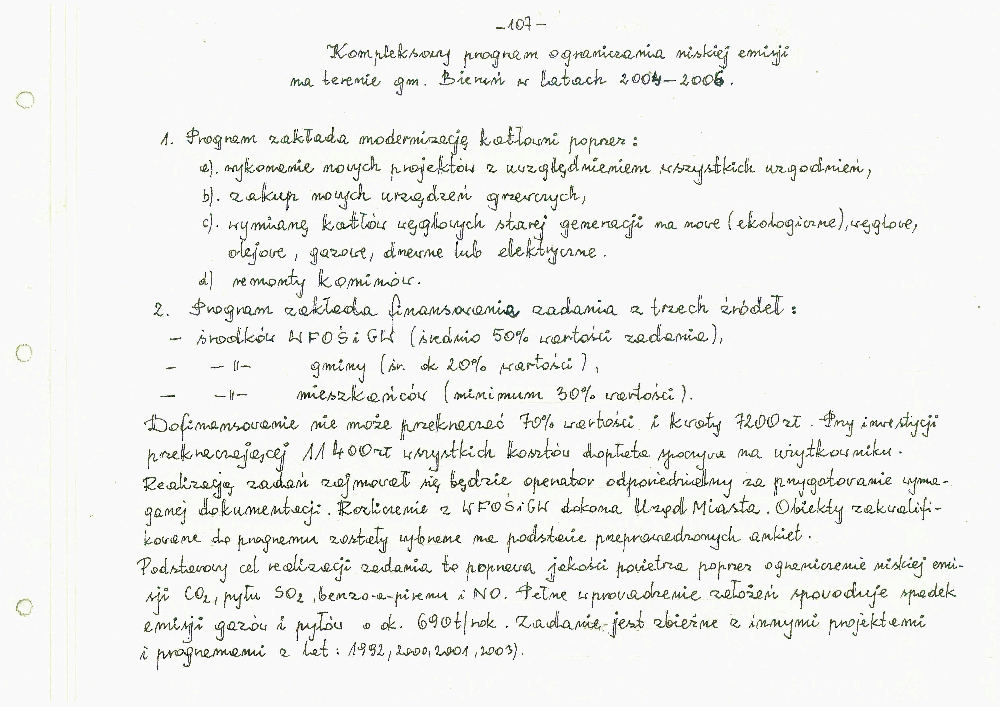 -107-
Kompleksowy program ograniczania niskiej emisji
na terenie gm. Bieruń w latach 2004-2006.
1. Program zakłada modernizację kotłowni poprzez:
a). wykonanie nowych projektów z uwzględnieniem wszystkich uzgodnień,
b). zakup nowych urządzeń grzewczych,
c). wymianę kotłów węglowych starej generacji na nowe (ekologiczne), węglowe,
olejowe, gazowe, drewne lub elektryczne.
d) remonty kominów.
2. Program zakłada finansowania zadania z trzech źródeł:
- środków WFOŚiGW (średnio 50% wartości zadania),
- -"- gminy (śr. ok 20% wartości),
- -"- mieszkańców (minimum 30% wartości).
Dofinansowanie nie może przekraczać 70% wartości i kwoty 7200 zł. Przy inwestycji
przekraczającej 11 400 zł wszystkich kosztów dopłata spoczywa na użytkowniku.
Realizacją zadań zajmował się będzie operator odpowiedzialny za przygotowanie wyma-
ganej dokumentacji. Rozliczenie z WFOŚiGW dokona Urząd Miasta. Obiekty zakwalifi-
kowane do programu zostały wybrane na podstawie przeprowadzonych ankiet.
Podstawowy cel realizacji zadania to poprawa jakości powietrza poprzez ograniczenie niskiej emi-
sji CO2, pyłu SO2, benzo-a-pirenu i NO. Pełne wprowadzenie założeń spowoduje spadek
emisji gazów i pyłów o ok. 690t/rok. Zadanie jest zbieżne z innymi projektami
i programami z lat: 1992, 2000, 2001, 2003).